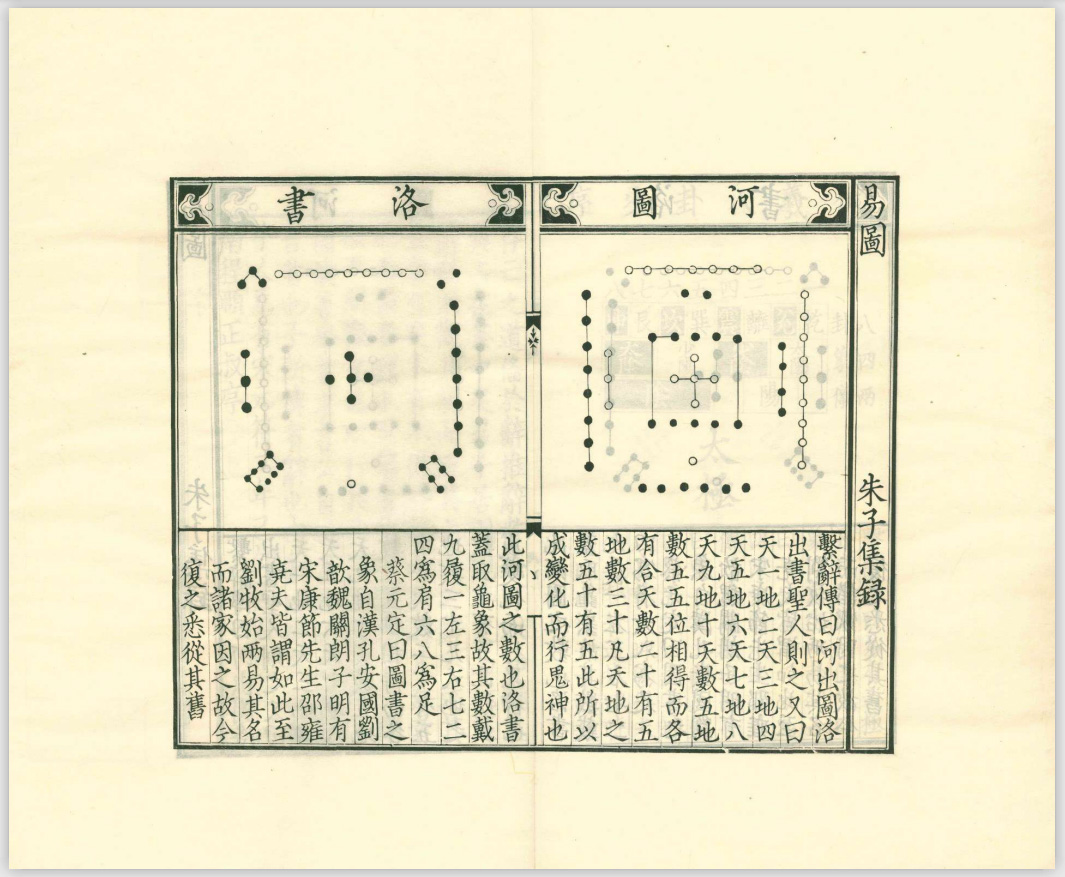 易圖
朱子集録
河圖
繫辭傳曰河出圖洛
出書聖人則之又曰
天一地二天三地四
天五地六天七地八
天九地十天數五地
數五五位相得而各
有合天數二十有五
地數三十凡天地之
數五十有五此所以
成變化而行鬼神也
洛書
此河圖之數也洛書
蓋取龜象故其數戴
九履一左三右七二
四爲肩六八爲足
蔡元定曰圖書之
象自漢孔安國劉
歆魏關朗子明有
宋康節先生邵雍
堯夫皆謂如此至
劉牧始兩易其名
而諸家因之故今
復之悉從其舊